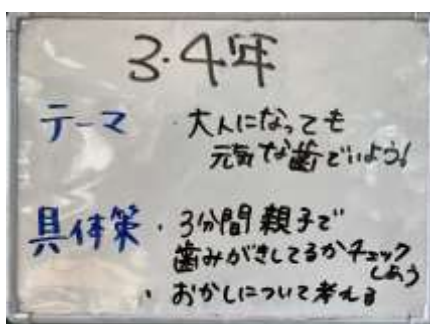 3・4年
テーマ ・大人になっても
元気な歯でいよう!
具体策・3分間親子で
歯みがきしてるかチェック
しあう
・おかしについて考える